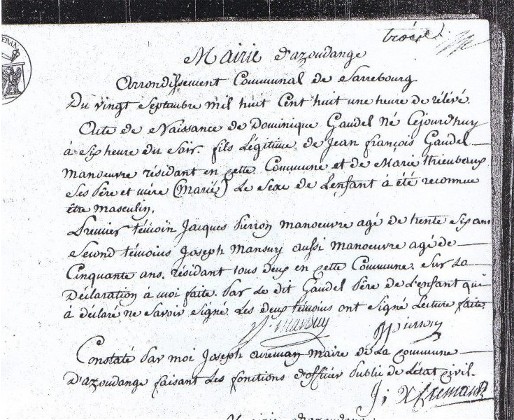 troisième
Mairie d'azoudange
Arrondissement Communal de Sarrebourg
Du vingt Septembre mil huit Cent huit une heure de rélévé
Acte de Naissance de Dominique Gaudel né Cejourdhuy
à Six heure du Soir. fils Légitime de Jean françois Gaudel
manœuvre résidant en cette Commune et de Marie thieubeaux
Ses Père et mère (Mariés) Le Sexe de Lenfant à été reconnue
être masculin.
Premier témoin Jacques Pierron manœuvre agé de trente Six ans
Second témoins Joseph Mansuy aussi Manœuvre agé de
Cinquante ans. résidant tous deux en cette Commune. Sur La
Déclaration à moi faite. Par Le dit Gaudel Père de L'enfant qui
à déclaré ne Savoir Signé. Les deux témoins ont Signé Lecture faite.
J. Mansuy
J Pierron
Constaté Par moi Joseph aireman Maire de La Commune
D'azoudange faisant Les fonctions d'officier Public de Letat Civil.